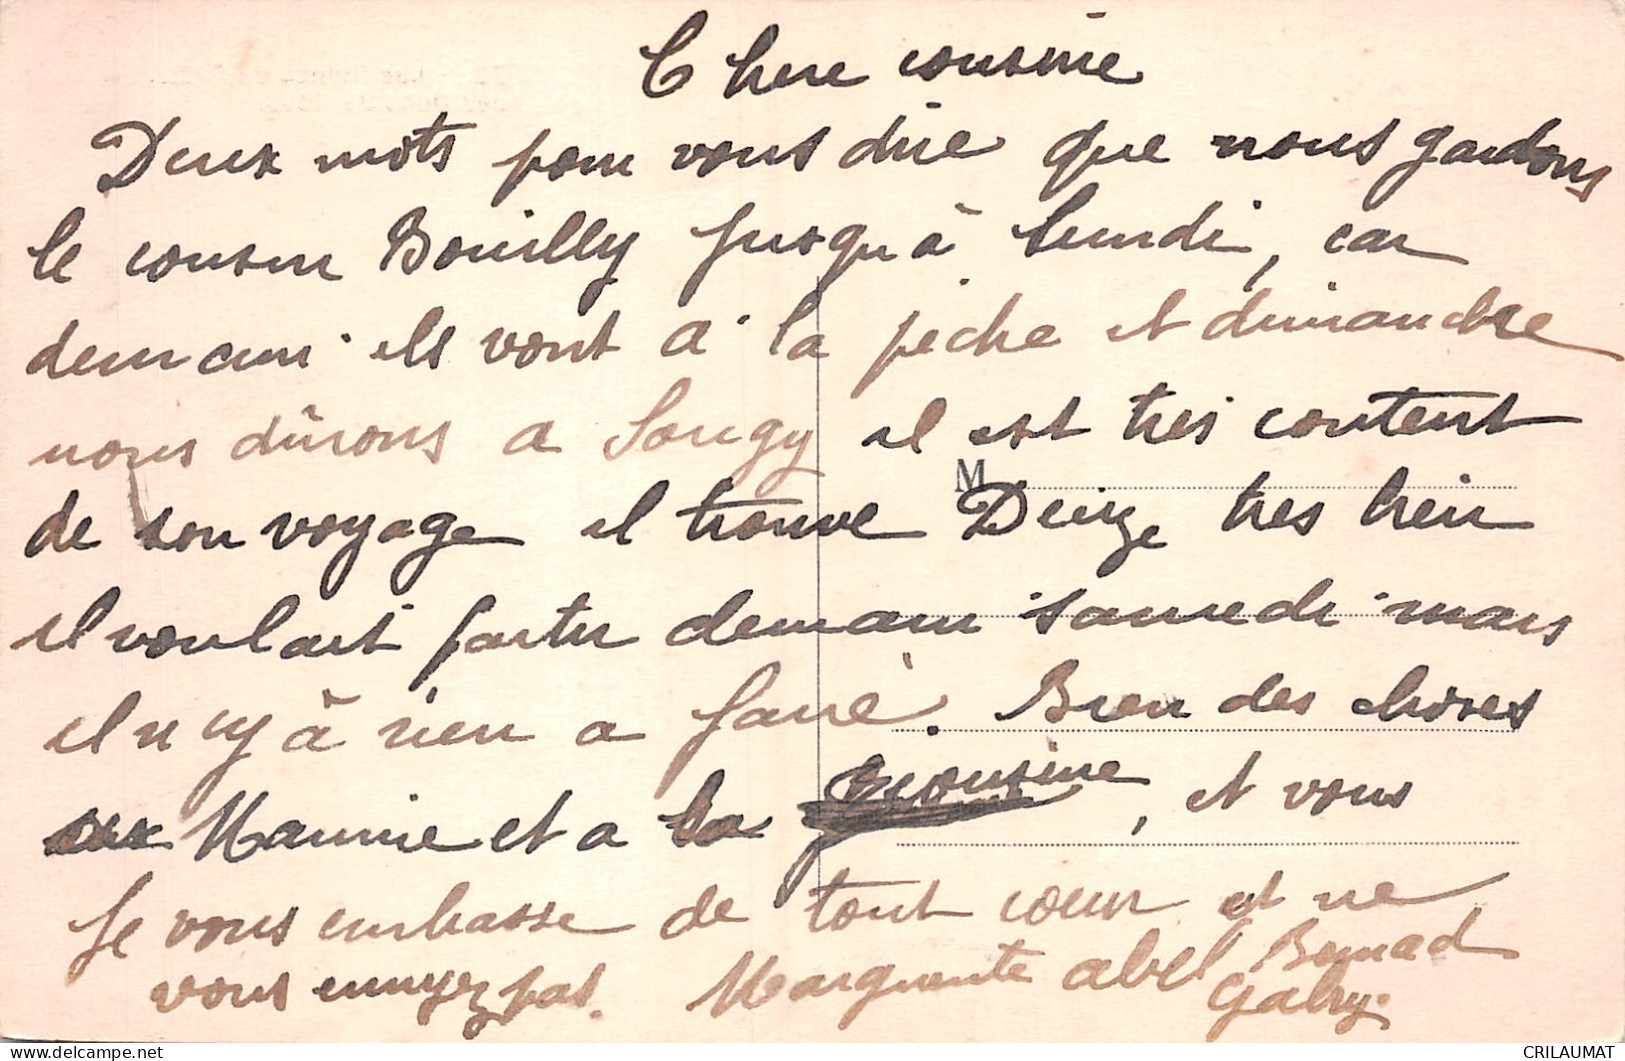 Chere cousine
Deux mots pour vous dire que nous gardons
le cousin Bouilly jusqu'à lundi, car
demain ils vont à la pêche et dimanche
nous dirons a Sougy il est très content
de son voyage il trouve Decize tres bien
il voulait partir demain samedi mais
il n'y à rien a faire. Bien des choses
Mamie et a la cousine, et vous
Je vous embrasse de tout coeur et ne
vous ennuyez pas. Marguerite abel Bernad
Gaby.
M
CRILAUMAT